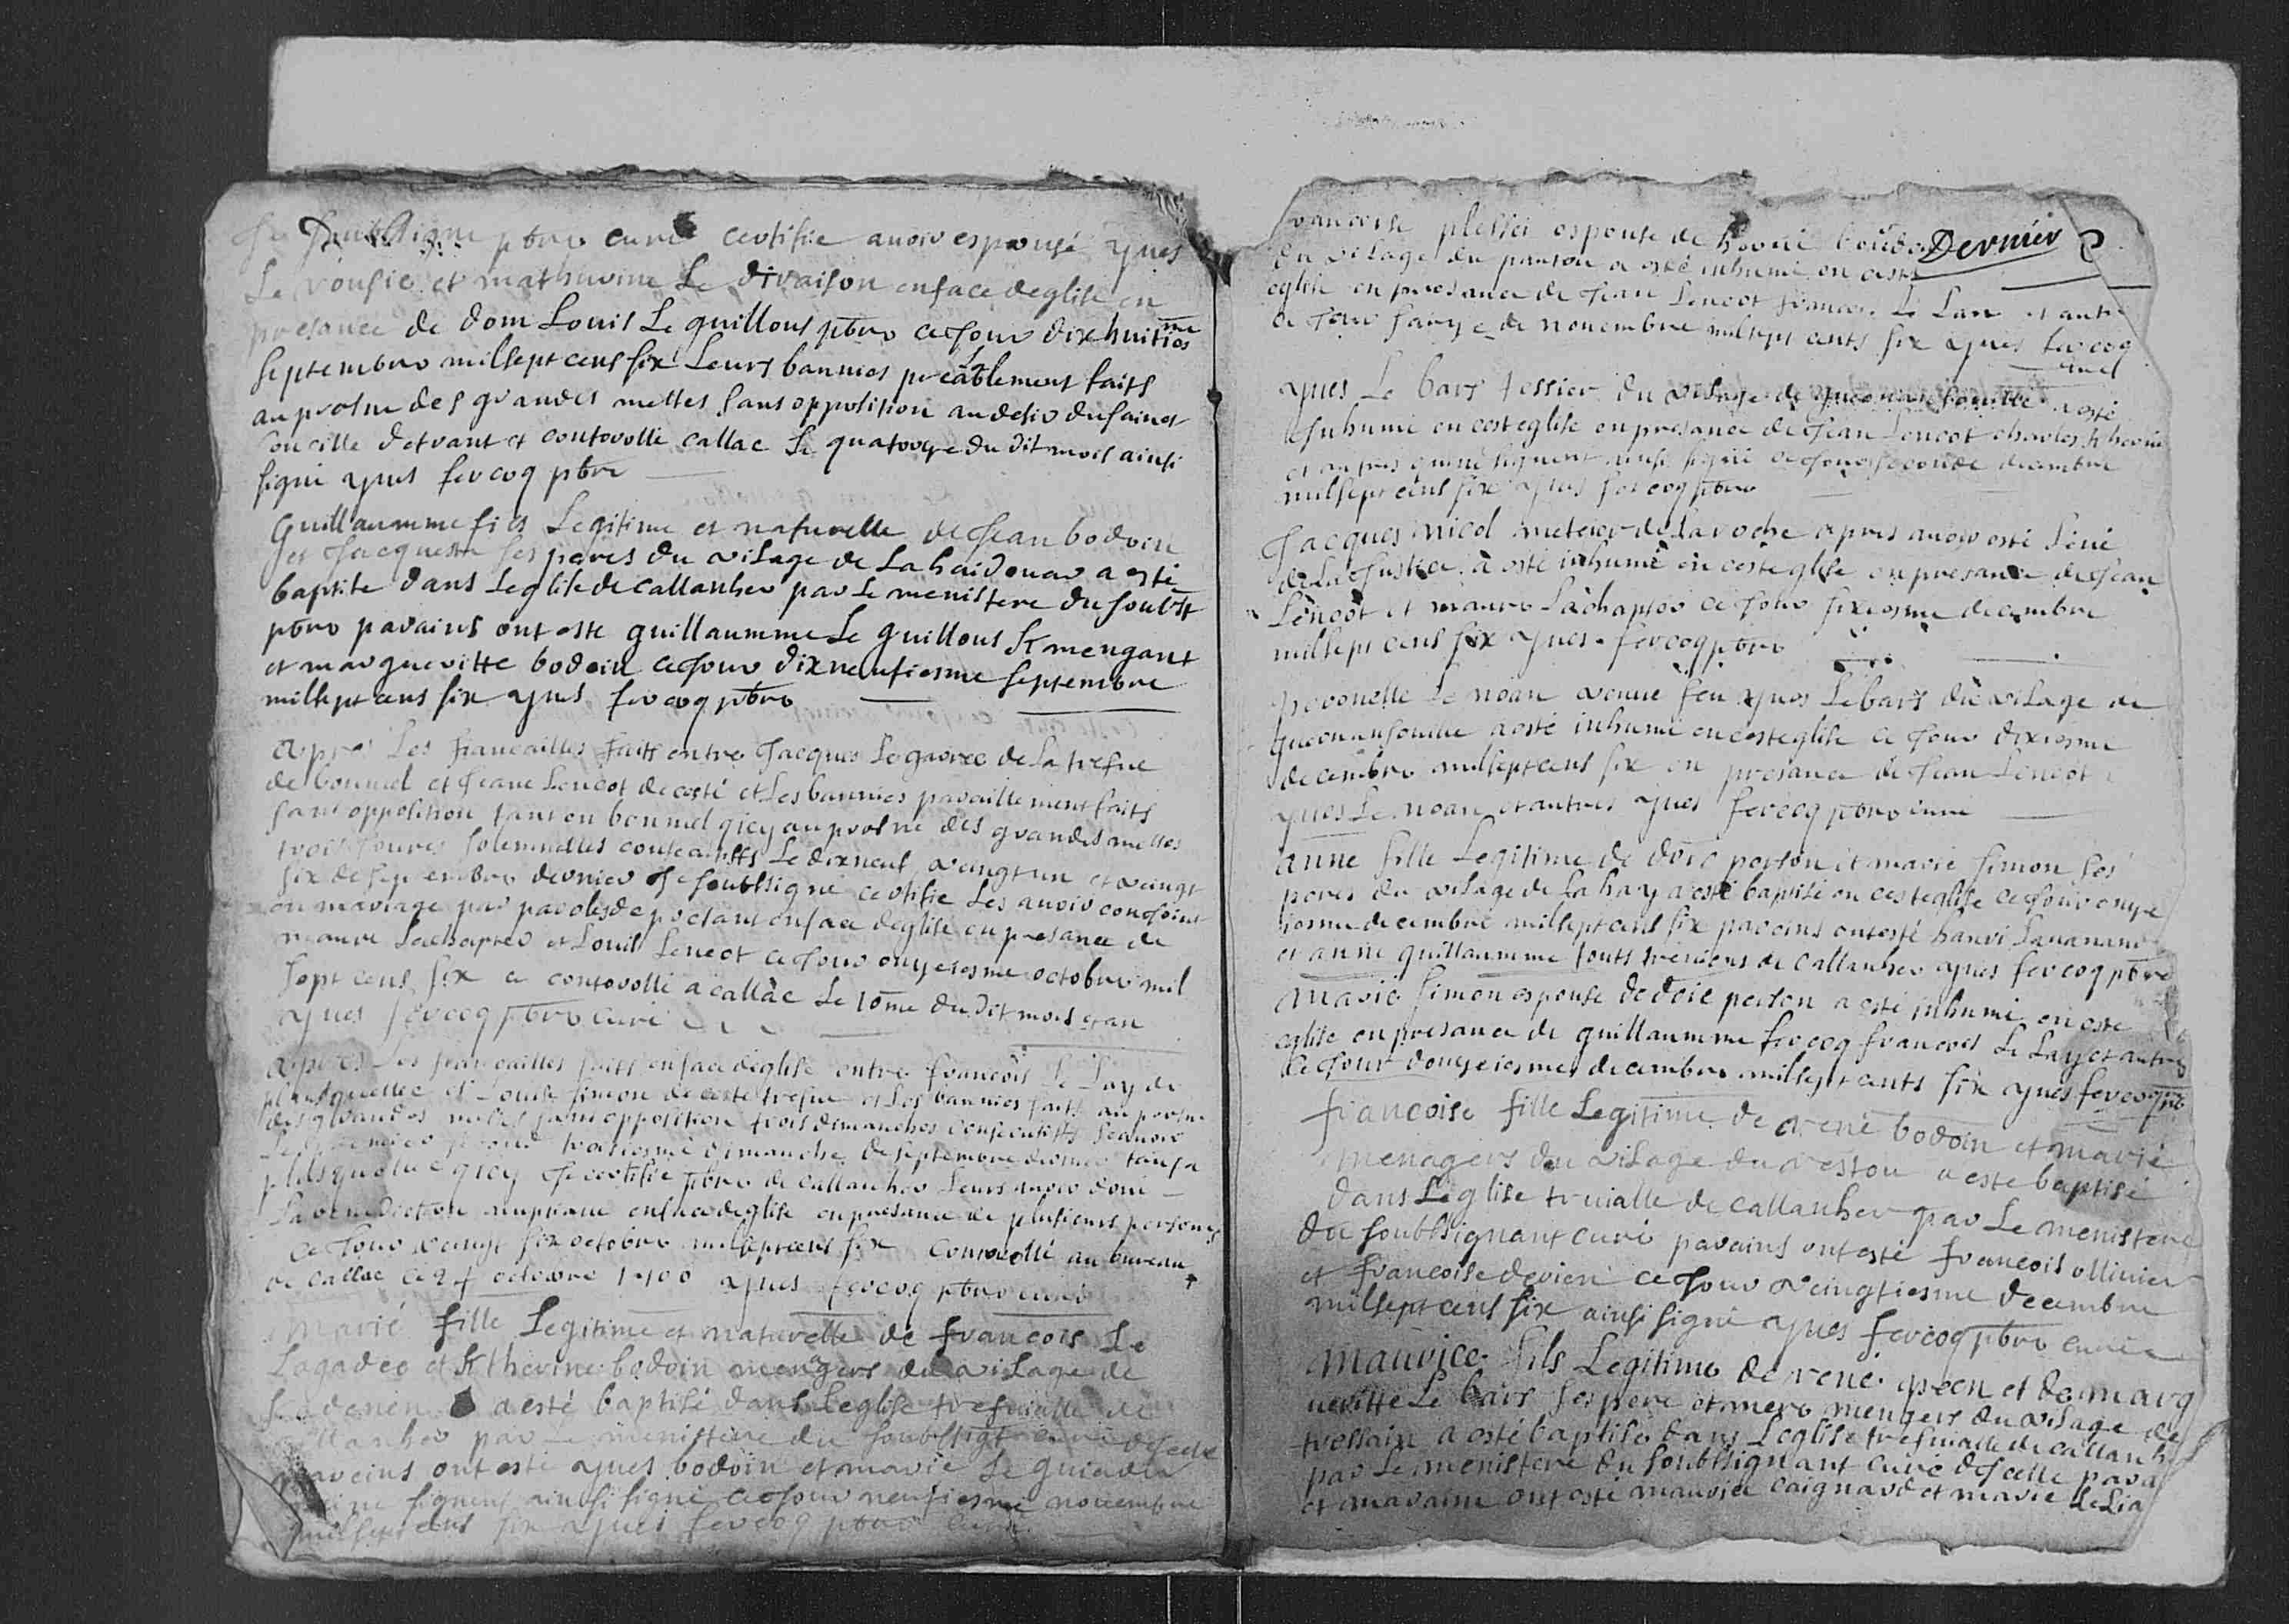 Je Soubsigne ptbre curé certifie avoir espousé yves
Le rousic et mathurine Le divaison enface deglise en
presance de dom Louis Le guillous ptbre ce Jour dix huitiesme
septembre millsept cens six Leurs bannies preablement faits
au prosne des grandes messes sans opposition au desir du sainct
concille detrant et controlle callac Le quatorze du dit mois ainsi
signe yves fercoq ptbre
Guillaumme fils Legitime et naturelle de Jean bodoin
et Jacquesn ses peres du vilage de La haidouar a esté
baptise dans Leglise de callanhec par Le menistere du soubst
ptbre parains ont este guillaumme Le guillous K mengant
et margueritte bodoin ce Jour dixneufiesme septembre
millsept cens six yves fercoq ptbre
apre Les fiancailles faitt entre Jacques Le de La trefve
de bonnuel et Jeane Lencot de cesté et Les bannies pavaillement faits
sans opposition tant en bonnuel qicy au prosne des grandes messes
trois Joures solemnelles consecutifs Le dixneuf vingt un et vingt
six de septembre dernier Je soubsigné certifie Les avoir conJoint
en mariage par parolesde presant enface deglise en presance de
maure Lachapter et Louis Lencot ce Jour onzeiesme octobre mil
sept cens six et controllé a callàc Le 10me du dit mois et an
yves fercoq ptbre curé
apres Les fiancailles faitt enface deglise entre francois Le Lay de
plusquellec et Louise simon de ceste trefve et Les bannies faits au prosne
des grandes messes sans opposition trois dimanches consecutifs scavoir
Le premier second troisiesme dimanche de septembre dernier tant a
plusquellec qicy Je certifie ptbre de callanhec Leurs avoir doné
La venediction nuptiale enface deglise en presance de plusieurs personnes
ce Jour vingt six octobre millsept cens six Controllé au bureau
de callac ce octobre yves fercoq ptbre curé
Marié fille Legitime et naturelle de francois Le
Lagadec et Ktherine bodoin mengers du vilage de
a esté baptisé dans Leglise trefvialle de
callanhec par Le menistere du soubsigt curé dicelle
pareins ont esté yves bodoin et marie Le guiader
qui ne signent ainsi signé ce Jour neufiesme novembre
millsept cens six yves fercoq ptbre curé
francoise plessei espouse de hervéé Dernier
du vilage du a esté inhumé en ceste
eglise en presance de Jean Lencot francois Le Lan et autre
ce Jour de novembre millsept cents six yves fercoq
yves Le bars tessier du vilage de a esté
inhumé en cest eglise en presance de Jean Lencot charles
et autres qui ne signent ainsi signé ce Jour seconde decembre
millsept cens six yves fercoq ptbre
Jacques nicol meteier de La roche apres avoir esté
de La Justice à esté inhumé en cèsteglise en presance de Jean
Lencot et maure Làchapter ce Jour sixiesme decembre
millsept cens six yves fercoq ptbre
peronelle Le noan venue feu yves Lebars du vilage de
a esté inhumé en cesteglise ce Jour dixiesme
decembre millsept cens six en presance de Jean Lencot
yves Le noan et autres yves fercoq ptbre curé
anne fille Legitime de person et marie simon ses
peres du vilage de La hay a esté baptisé en cesteglise ce Jour onze
iesme decembre millsept cens six pareins ont esté
et anne guillaumme touts treviens de callanhec yves fercoq ptbre
Marie simon espouse de person a esté inhumé en este
eglise en presance de guillaumme fercoq francois Le Lay et autres
ce Jour douzeiesme decembre millsept cents six yves fercoq ptbre
francoise fille Legitime de rené bodoin et marié
menagers du vilage du restou a este baptisé
dans Leglise trvialle de callanhec par Le menistere
du soubsignant curé parains ont esté francois ollivier
et francoise derien ce Jour vingtiesme decembre
millsept cens six ainsi signé yves fercoq ptbre curé
Maurice fils Legitime de rené et de marg
ueritte Le bars ses pere et mere mengers du vilage de
a esté baptisé dans Leglise trefvialle de callanhec
par Le menistere du soubsignant curé discelle para
et maraine ont esté maurice caignard et marie Le Lia